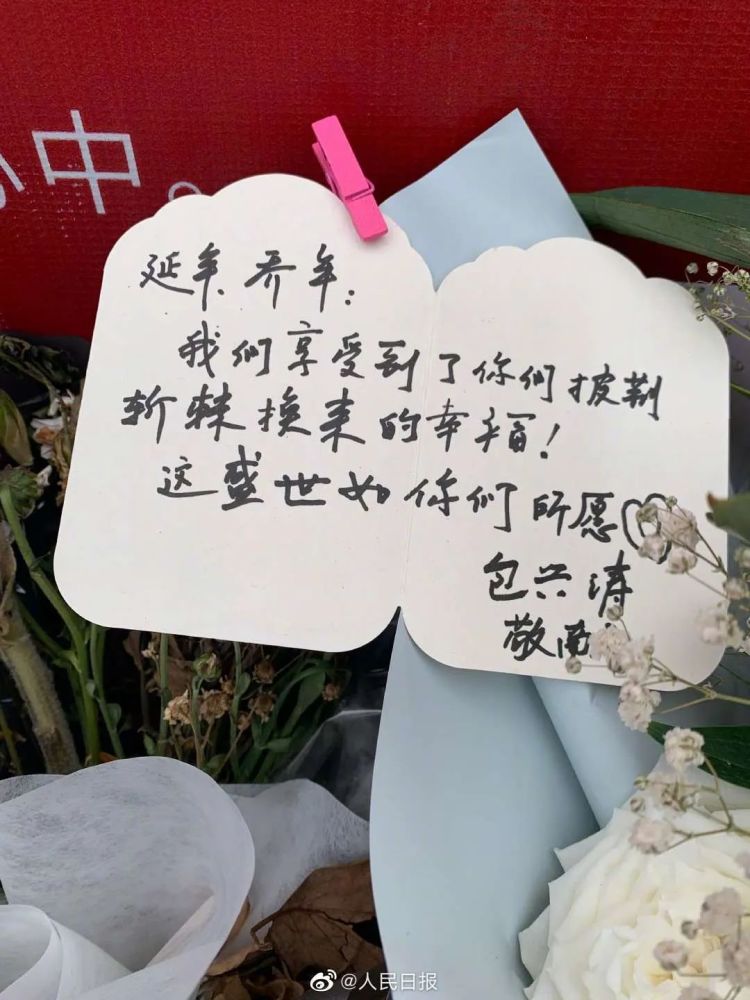 中。
延年乔年：
我们享受到了你们披荆
斩棘换来的幸福！
这盛世如你们所愿♡
包兴涛
敬献
@人民日报